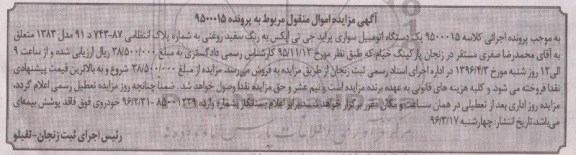 آگهی مزایده اموال منقول مربوط به پرونده ۹۵۰۰۰۱۵
به موجب پرونده اجرائی کلاسه ۹۵۰۰۰۱۵ یک دستگاه اتومبیل سواری پراید جی تی ایکس به رنگ سفید روغنی به شماره پلاک انتظامی ۸۷-۷۴۳ د ۹۱ مدل ۱۳۸۳ متعلق
به آقای محمدرضا صفری مستقر در زنجان پارکینگ خیام که طبق نظر مورخ ۹۵/۱۱/۱۳ کارشناس رسمی دادگستری به مبلغ ۳۸/۵۰۰/۰۰۰ ریال ارزیابی شده و از ساعت ۹
الی ۱۲ روز شنبه مورخ ۱۳۹۶/۴/۳ در اداره اجرای اسناد رسمی ثبت زنجان از طریق مزایده به فروش می‌رسد. مزایده از مبلغ ۳۸/۵۰۰/۰۰۰ شروع و به بالاترین قیمت پیشنهادی
نقدا فروخته می شود و کلیه هزینه های قانونی به عهده برنده مزایده است و نیم عشر و حق مزایده نقدا وصول خواهد شد. ضمنا چنانچه روز مزایده تعطیل رسمی اعلام گردد،
مزایده روز اداری بعد از تعطیلی در همان ساعت و مکان مقرر برگزار خواهد شد. خودروی فوق فاقد پوشش بیمه‌ای
می‌باشد. تاریخ انتشار: چهارشنبه ۹۶/۳/۱۷
رئیس اجرای ثبت زنجان-تفیلو